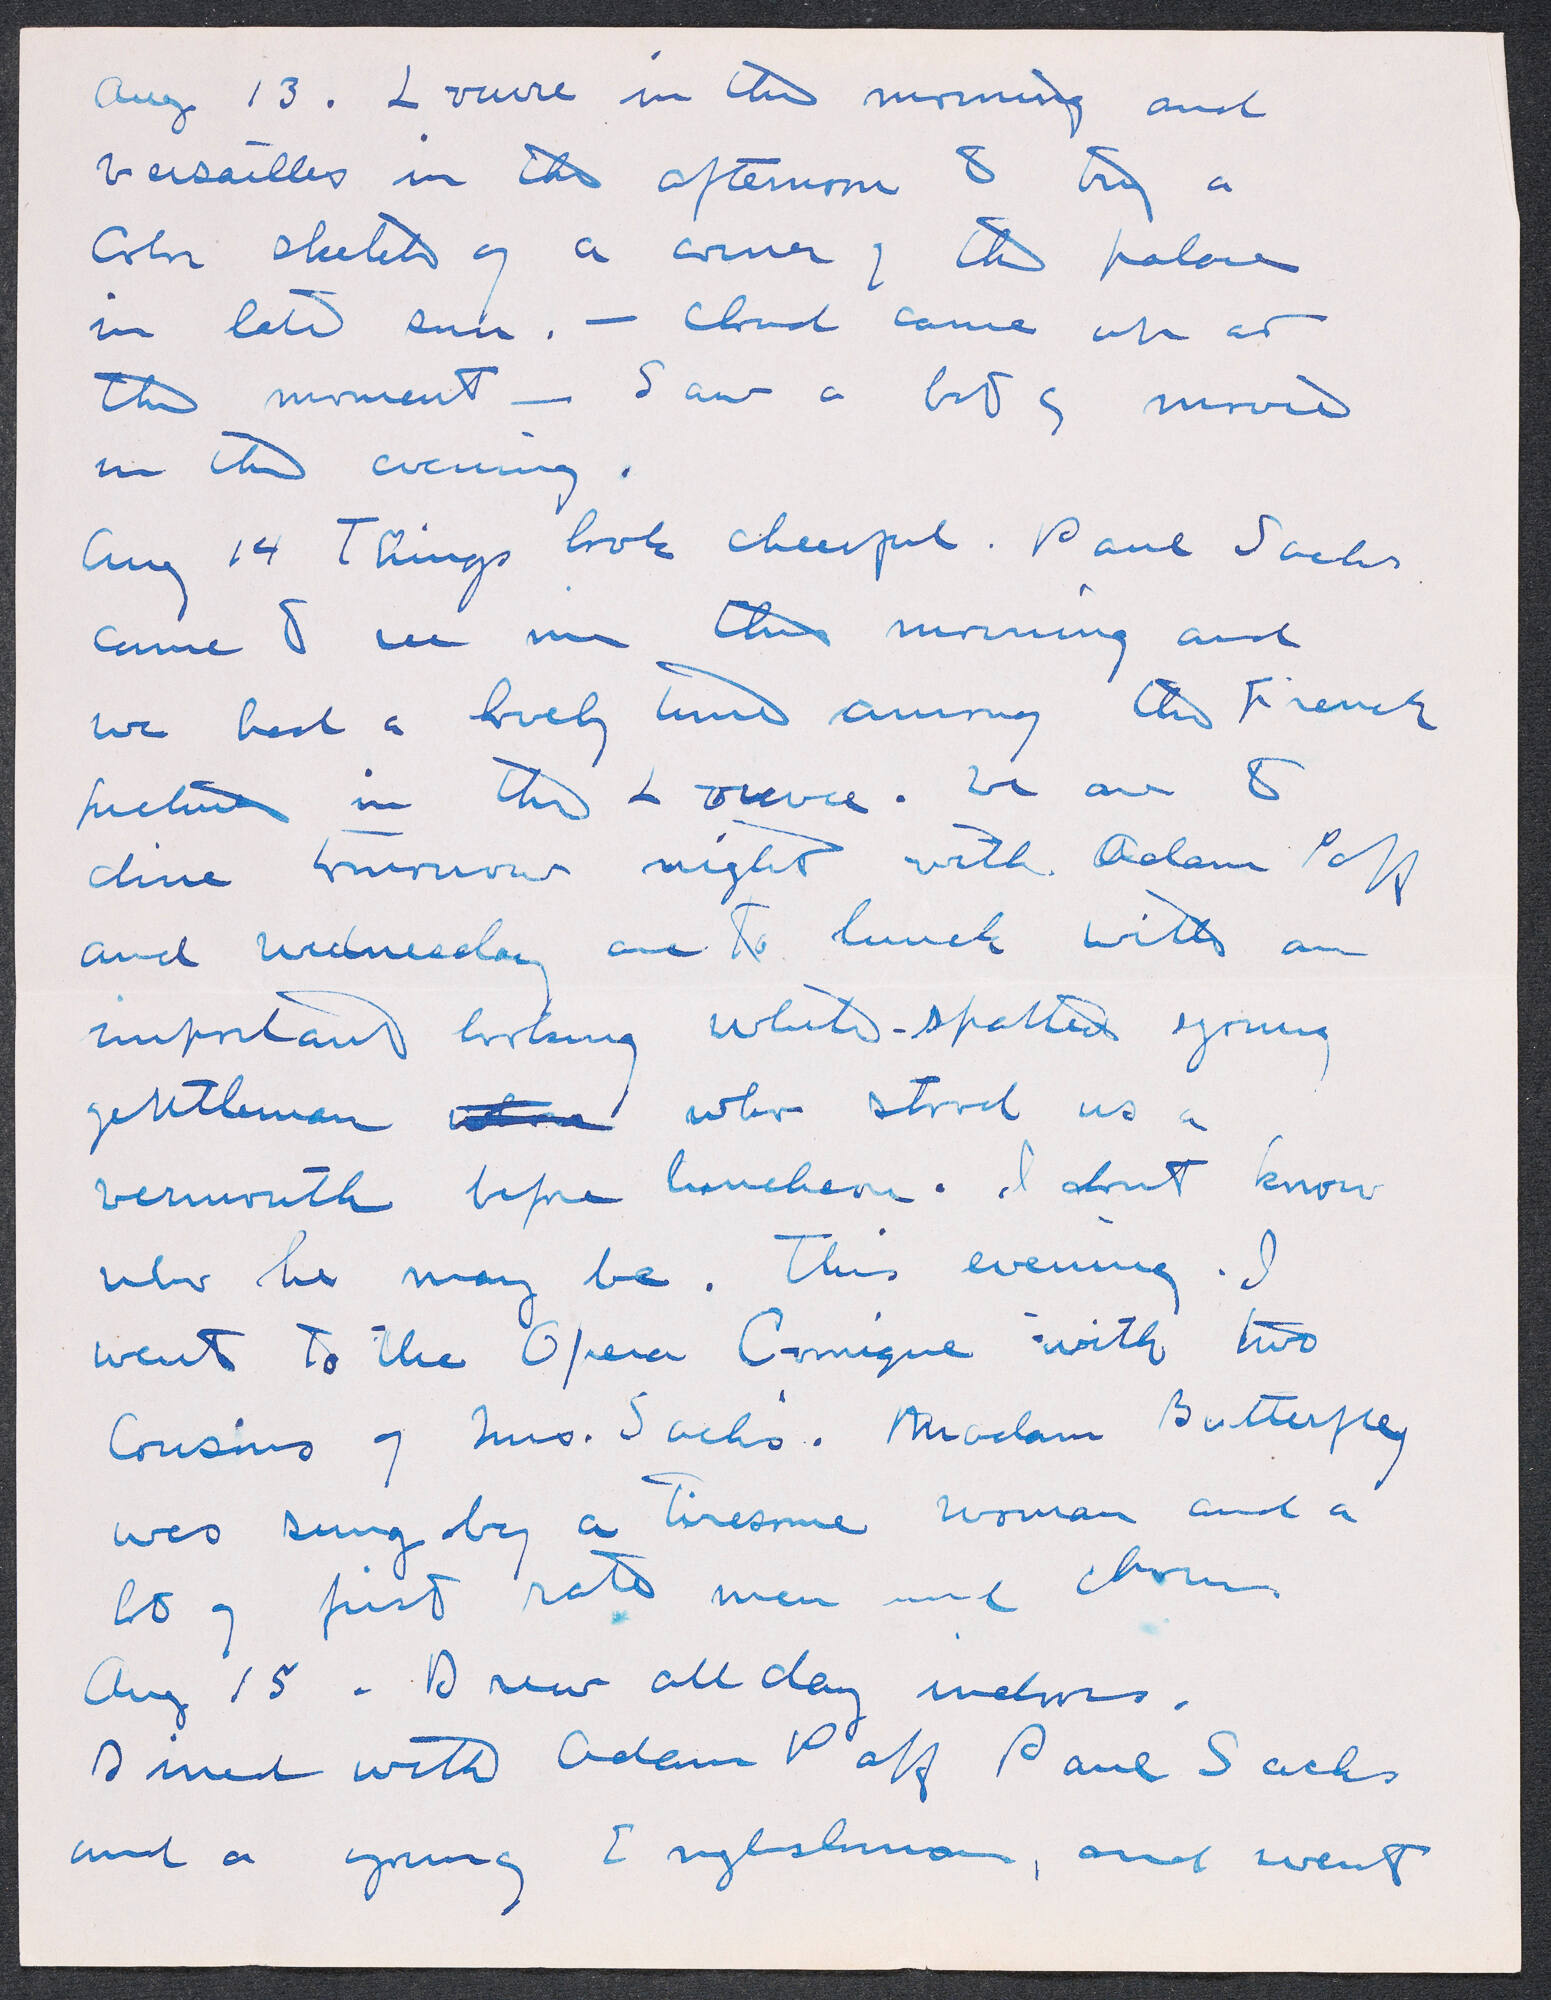 Aug 13. Louvre in the morning and
Versailles in the afternoon to try a
Color sketch of a corner of the palace
in late sun. — Cloud came up at
the moment — Saw a bit of movie
in the evening.
Aug 14 Things look cheerful. Paul Sachs
came to see me this morning and
we had a lovely time among the French
pictures in the Louvre. We are to
dine tomorrow night with Adam Paff
and Wednesday are to lunch with an
important looking white-spatted young
gentleman who stood us a
vermouth before luncheon. I dont know
who he may be. This evening I
went to the Opera Comique with two
Cousins of Mrs. Sachs. Madam Butterfly
was sung by a tiresome woman and a
lot of first rate men and chorus.
Aug 15. Drew all day indoors.
Dined with Adam Paff Paul Sachs
and a young Englishman, and went